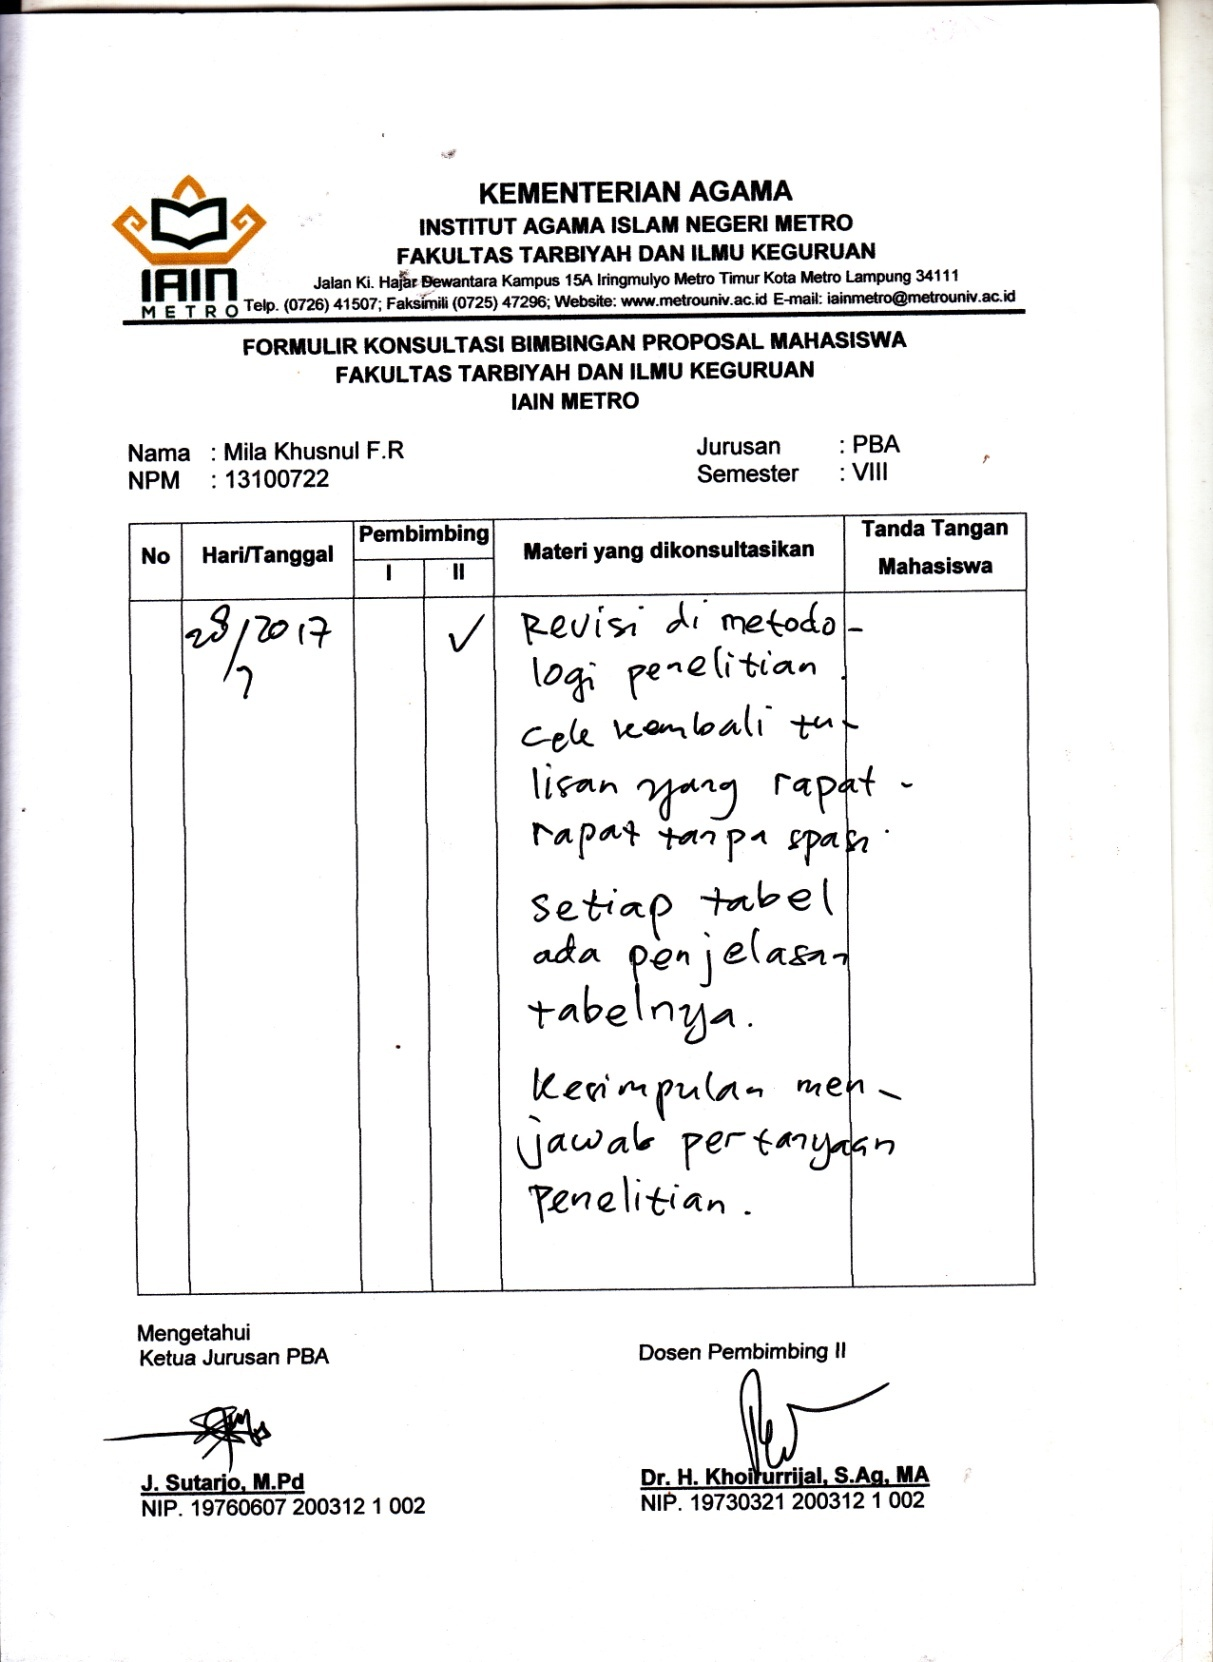 KEMENTERIAN AGAMA
INSTITUT AGAMA ISLAM NEGERI METRO
FAKULTAS TARBIYAH DAN ILMU KEGURUAN
Jalan Ki. Hajar Dewantara Kampus 15A Iringmulyo Metro Timur Kota Metro Lampung 34111
Telp. (0726) 41507; Faksimili (0725) 47296; Website: www.metrouniv.ac.id E-mail: iainmetro@metrouniv.ac.id
IAIN
METRO
FORMULIR KONSULTASI BIMBINGAN PROPOSAL MAHASISWA
FAKULTAS TARBIYAH DAN ILMU KEGURUAN
IAIN METRO
Nama : Mila Khusnul F.R
NPM : 13100722
Jurusan : PBA
Semester : VIII
No Hari/Tanggal Pembimbing Materi yang dikonsultasikan Tanda Tangan Mahasiswa
I II
28/2017 ✓
/7
Revisi di metodo-
logi penelitian.
Cek kembali tu-
lisan yang rapat-
rapat tanpa spasi.
Setiap tabel
ada penjelasan
tabelnya.
Kesimpulan men-
jawab pertanyaan
penelitian.
Mengetahui
Ketua Jurusan PBA
J. Sutarjo, M.Pd
NIP. 19760607 200312 1 002
Dosen Pembimbing II
Dr. H. Khoirurrijal, S.Ag, MA
NIP. 19730321 200312 1 002